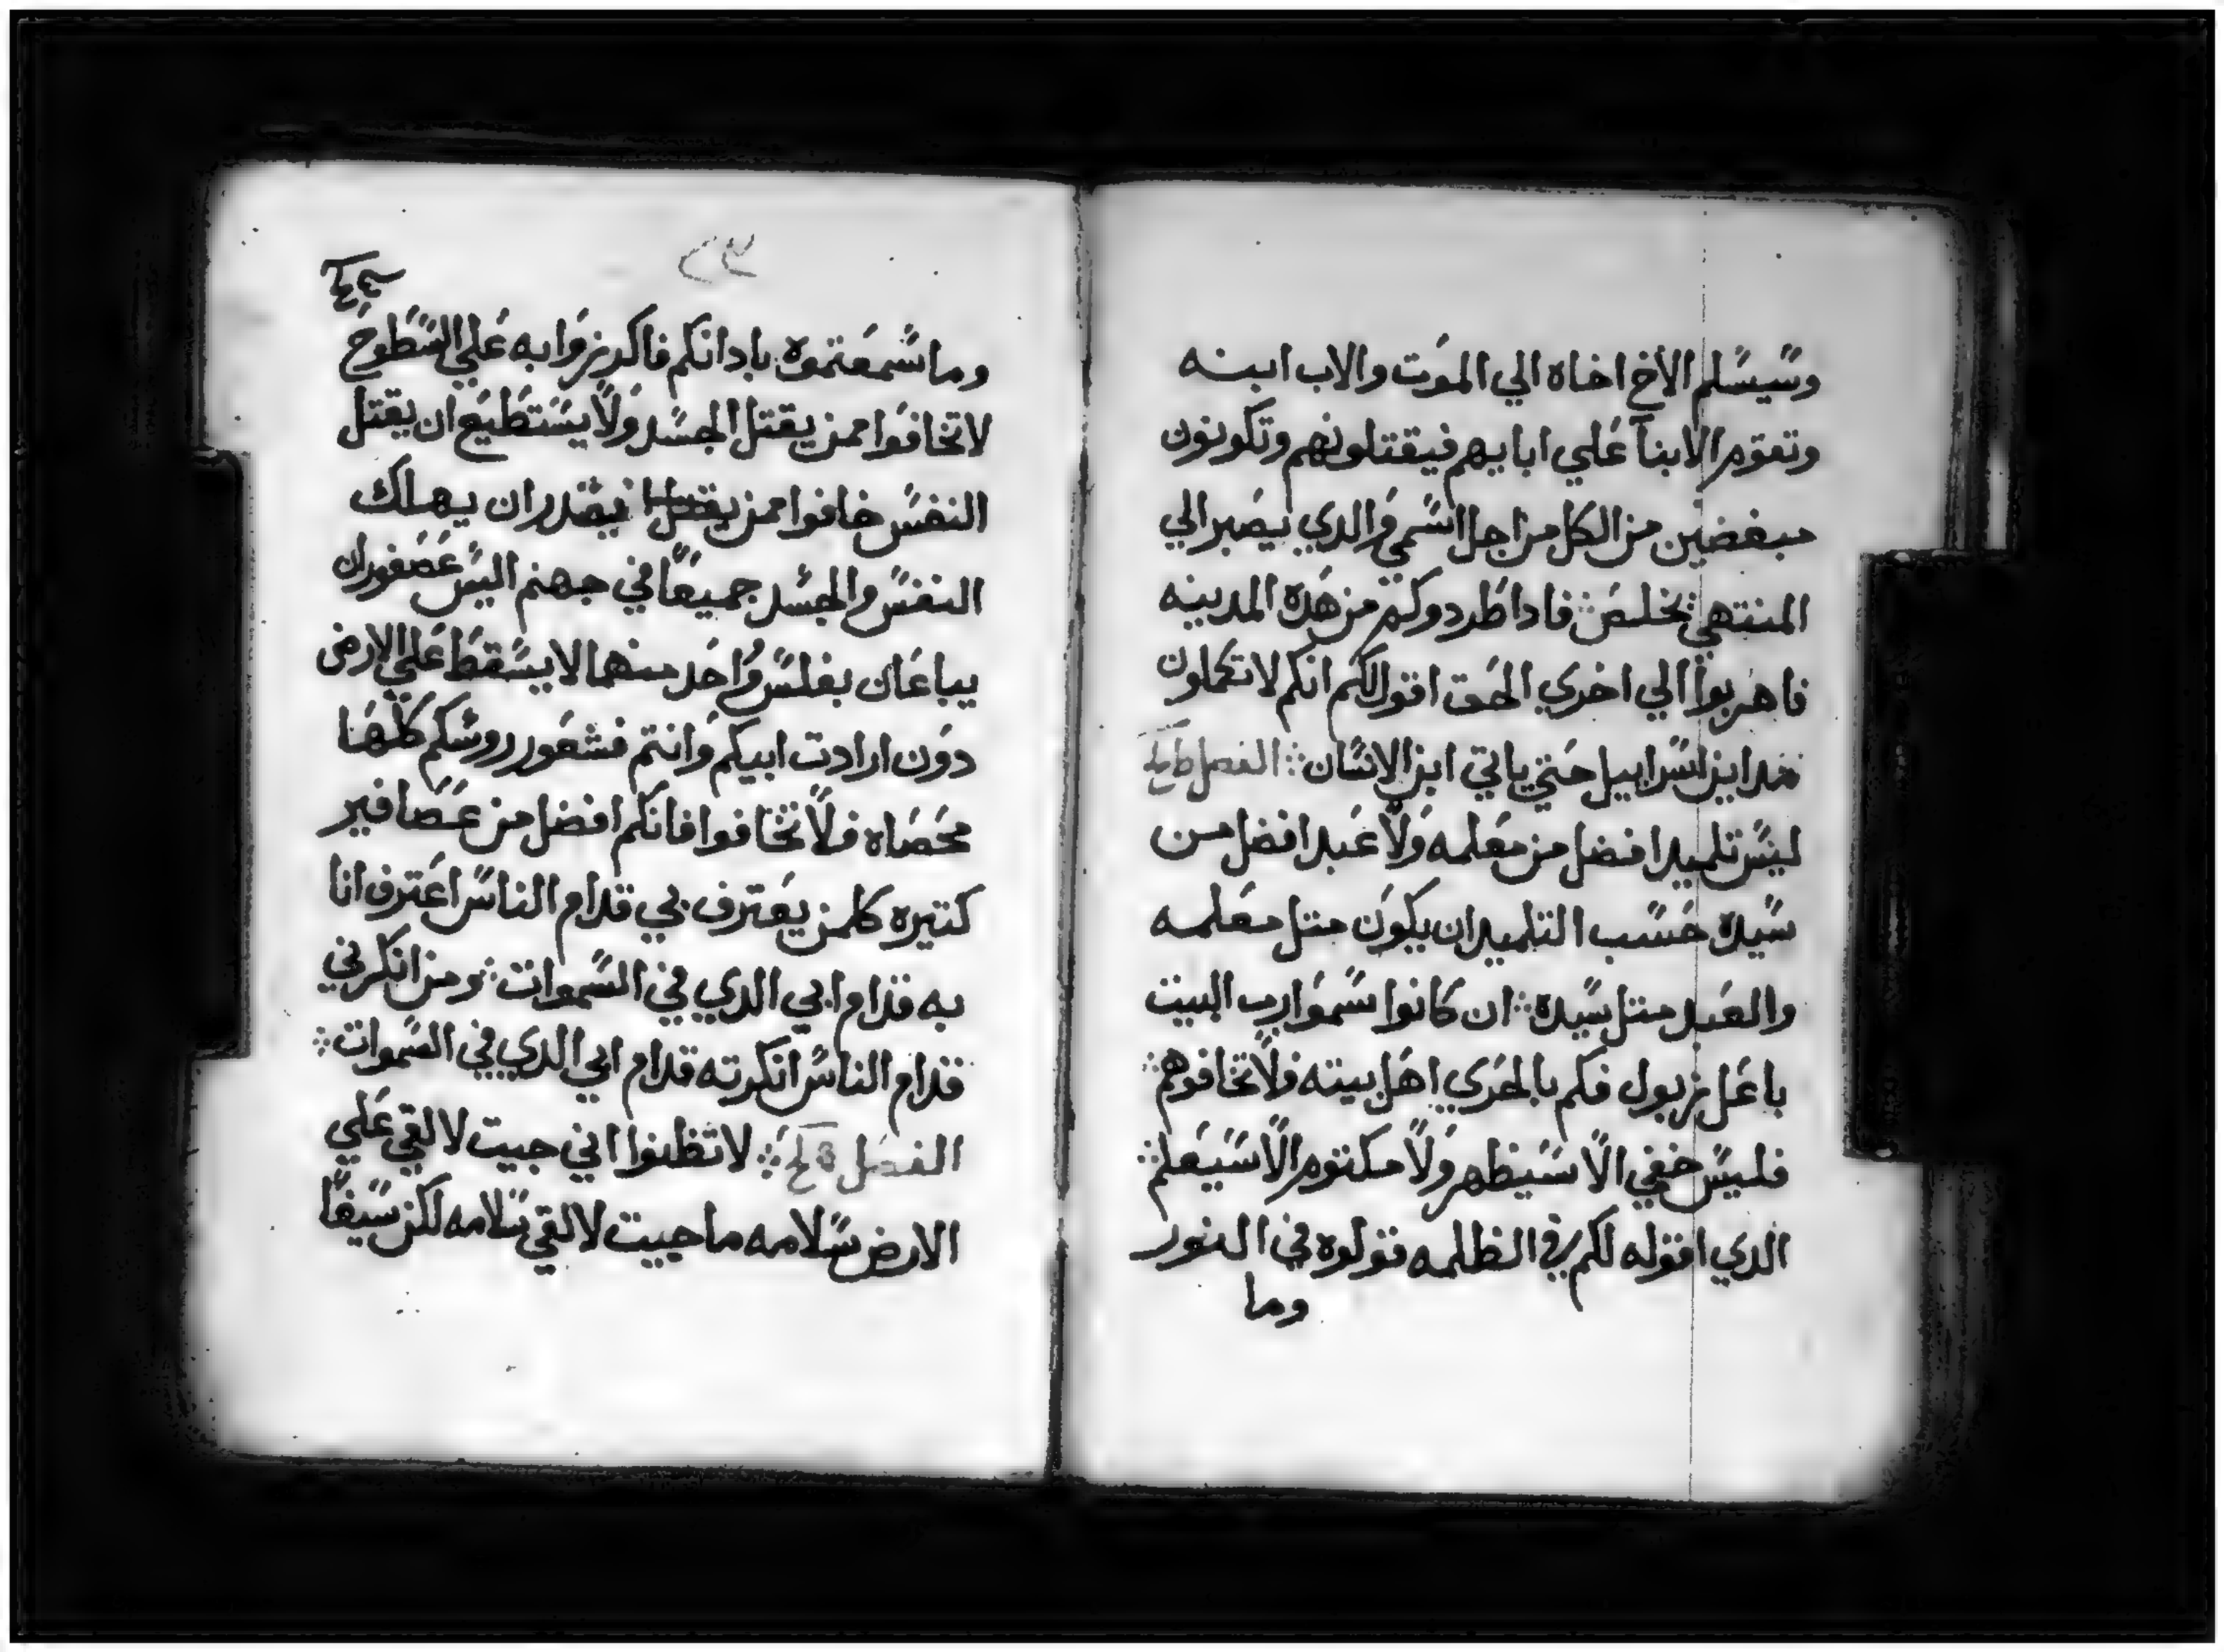 وسيسلم الأخ اخاه الي الموت والاب ابنه
وتقوم الابنا علي ابايهم فيقتلونهم وتكونون
مبغضين من الكل من اجل اسمي والدي يصبر الي
المنتهي يخلص ܀ فادا طردوكم من هده المدينه
فاهربوا الي اخري الحق اقول لكم انكم لا تكملون
مداين اسراييل حتي ياتي ابن الانسان ܀ الفصل
ليس تلميدا افضل من معلمه ولا عبدا افضل من
سيده حسب التلميد ان يكون متل معلمه
والعبد متل سيده ܀ ان كانوا سموا رب البيت
باعل زبول فكم بالحري اهل بيته فلا تخافوهم ܀
فليس خفي الا سيظهر ولا مكتوم الا سيعلم ܀
الدي اقوله لكم في الظلمه قولوه في النور
وما
٢٣
وما سمعتموه بادانكم فاكرزوا به علي السطوح
لا تخافوا ممن يقتل الجسد ولا يستطيع ان يقتل
النفس خافوا ممن يقدر ان يهلك
النفس والجسد جميعا في جهنم اليس عصفوران
يباعان بفلس واحد منهما لا يسقط علي الارض
دون ارادت ابيكم وانتم فشعور روسكم كلها
محصاه فلا تخافوا فانكم افضل من عصافير
كتيره كلمن يعترف بي قدام الناس اعترف انا
به قدام ابي الدي في السموات ܀ ومن انكرني
قدام الناس انكرته قدام ابي الدي في السموات ܀
الفصل ܀ لا تظنوا اني جيت لالقي علي
الارض سلامه ما جيت لالقي سلامه لكن سيفا